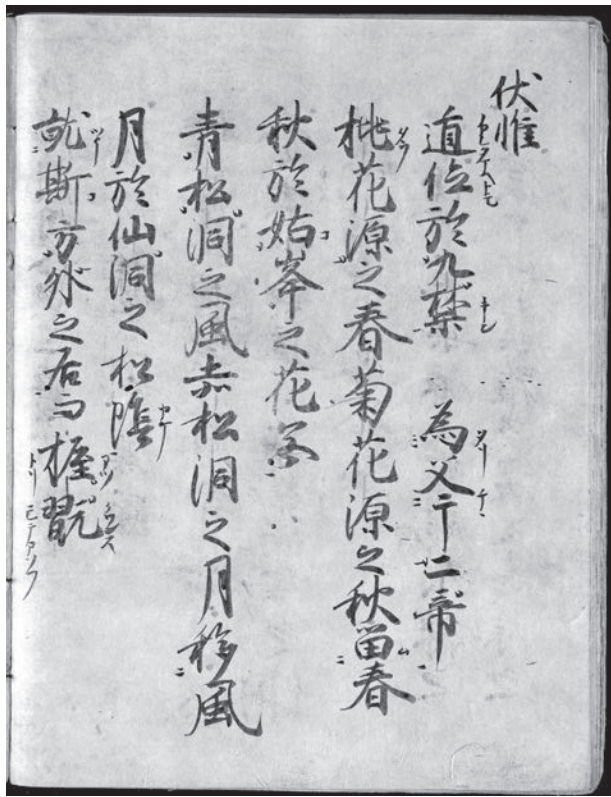 伏惟
位於九禁 為父于二帝
桃花源之春菊花源之秋留春
秋於姑峯之花
青松洞之風赤松洞之月移風
月於仙洞之松陰
就斯方外之居而握翫